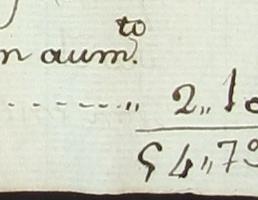 n aumᵗᵒ.
------" 2"1
54"79